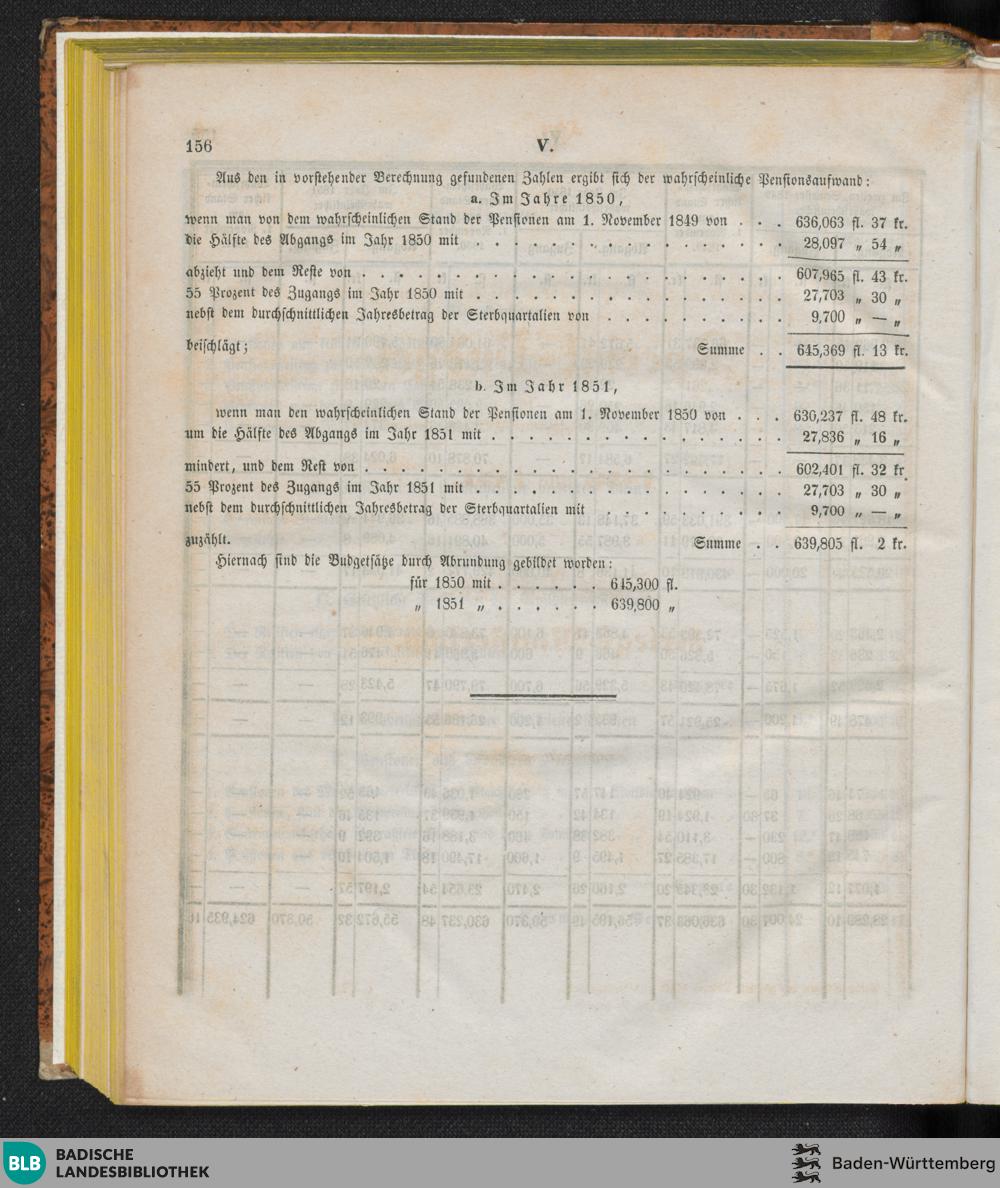 156 V.
Aus den in vorstehender Berechnung gefundenen Zahlen ergibt sich der wahrscheinliche Pensionsaufwand:
a. Im Jahre 1850,
wenn man von dem wahrscheinlichen Stand der Pensionen am 1. November 1849 von . . . 636,063 fl. 37 kr.
die Hälfte des Abgangs im Jahr 1850 mit . . . . . . . . . . . . . . . . 28,097 „ 54 „
abzieht und dem Reste von . . . . . . . . . . . . . . . . . . . . . 607,965 fl. 43 kr.
55 Prozent des Zugangs im Jahr 1850 mit . . . . . . . . . . . . . . . . 27,703 „ 30 „
nebst dem durchschnittlichen Jahresbetrag der Sterbquartalien von . . . . . . . . . 9,700 „ — „
beischlägt; Summe . . 645,369 fl. 13 kr.
b. Im Jahr 1851,
wenn man den wahrscheinlichen Stand der Pensionen am 1. November 1850 von . . . 630,237 fl. 48 kr.
um die Hälfte des Abgangs im Jahr 1851 mit . . . . . . . . . . . . . . . 27,836 „ 16 „
mindert, und dem Rest von . . . . . . . . . . . . . . . . . . . . . 602,401 fl. 32 kr
55 Prozent des Zugangs im Jahr 1851 mit . . . . . . . . . . . . . . . . 27,703 „ 30 „
nebst dem durchschnittlichen Jahresbetrag der Sterbquartalien mit . . . . . . . . . 9,700 „ — „
zuzählt. Summe . . 639,805 fl. 2 kr.
Hiernach sind die Budgetsätze durch Abrundung gebildet worden:
für 1850 mit . . . . . . 645,300 fl.
„ 1851 „ . . . . . . 639,800 „
BLB BADISCHE
LANDESBIBLIOTHEK
Baden-Württemberg